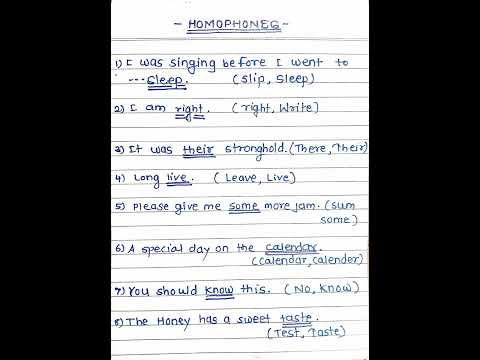 - HOMOPHONES -
1) I was singing before I went to
--- sleep. (slip, sleep)
2) I am right. (right, write)
3) It was their stronghold. (There, Their)
4) Long live. (Leave, Live)
5) Please give me some more jam. (sum
some)
6) A special day on the calendar.
(calendar, calender)
7) You should know this. (No, Know)
8) The Honey has a sweet taste.
(Test, Taste)